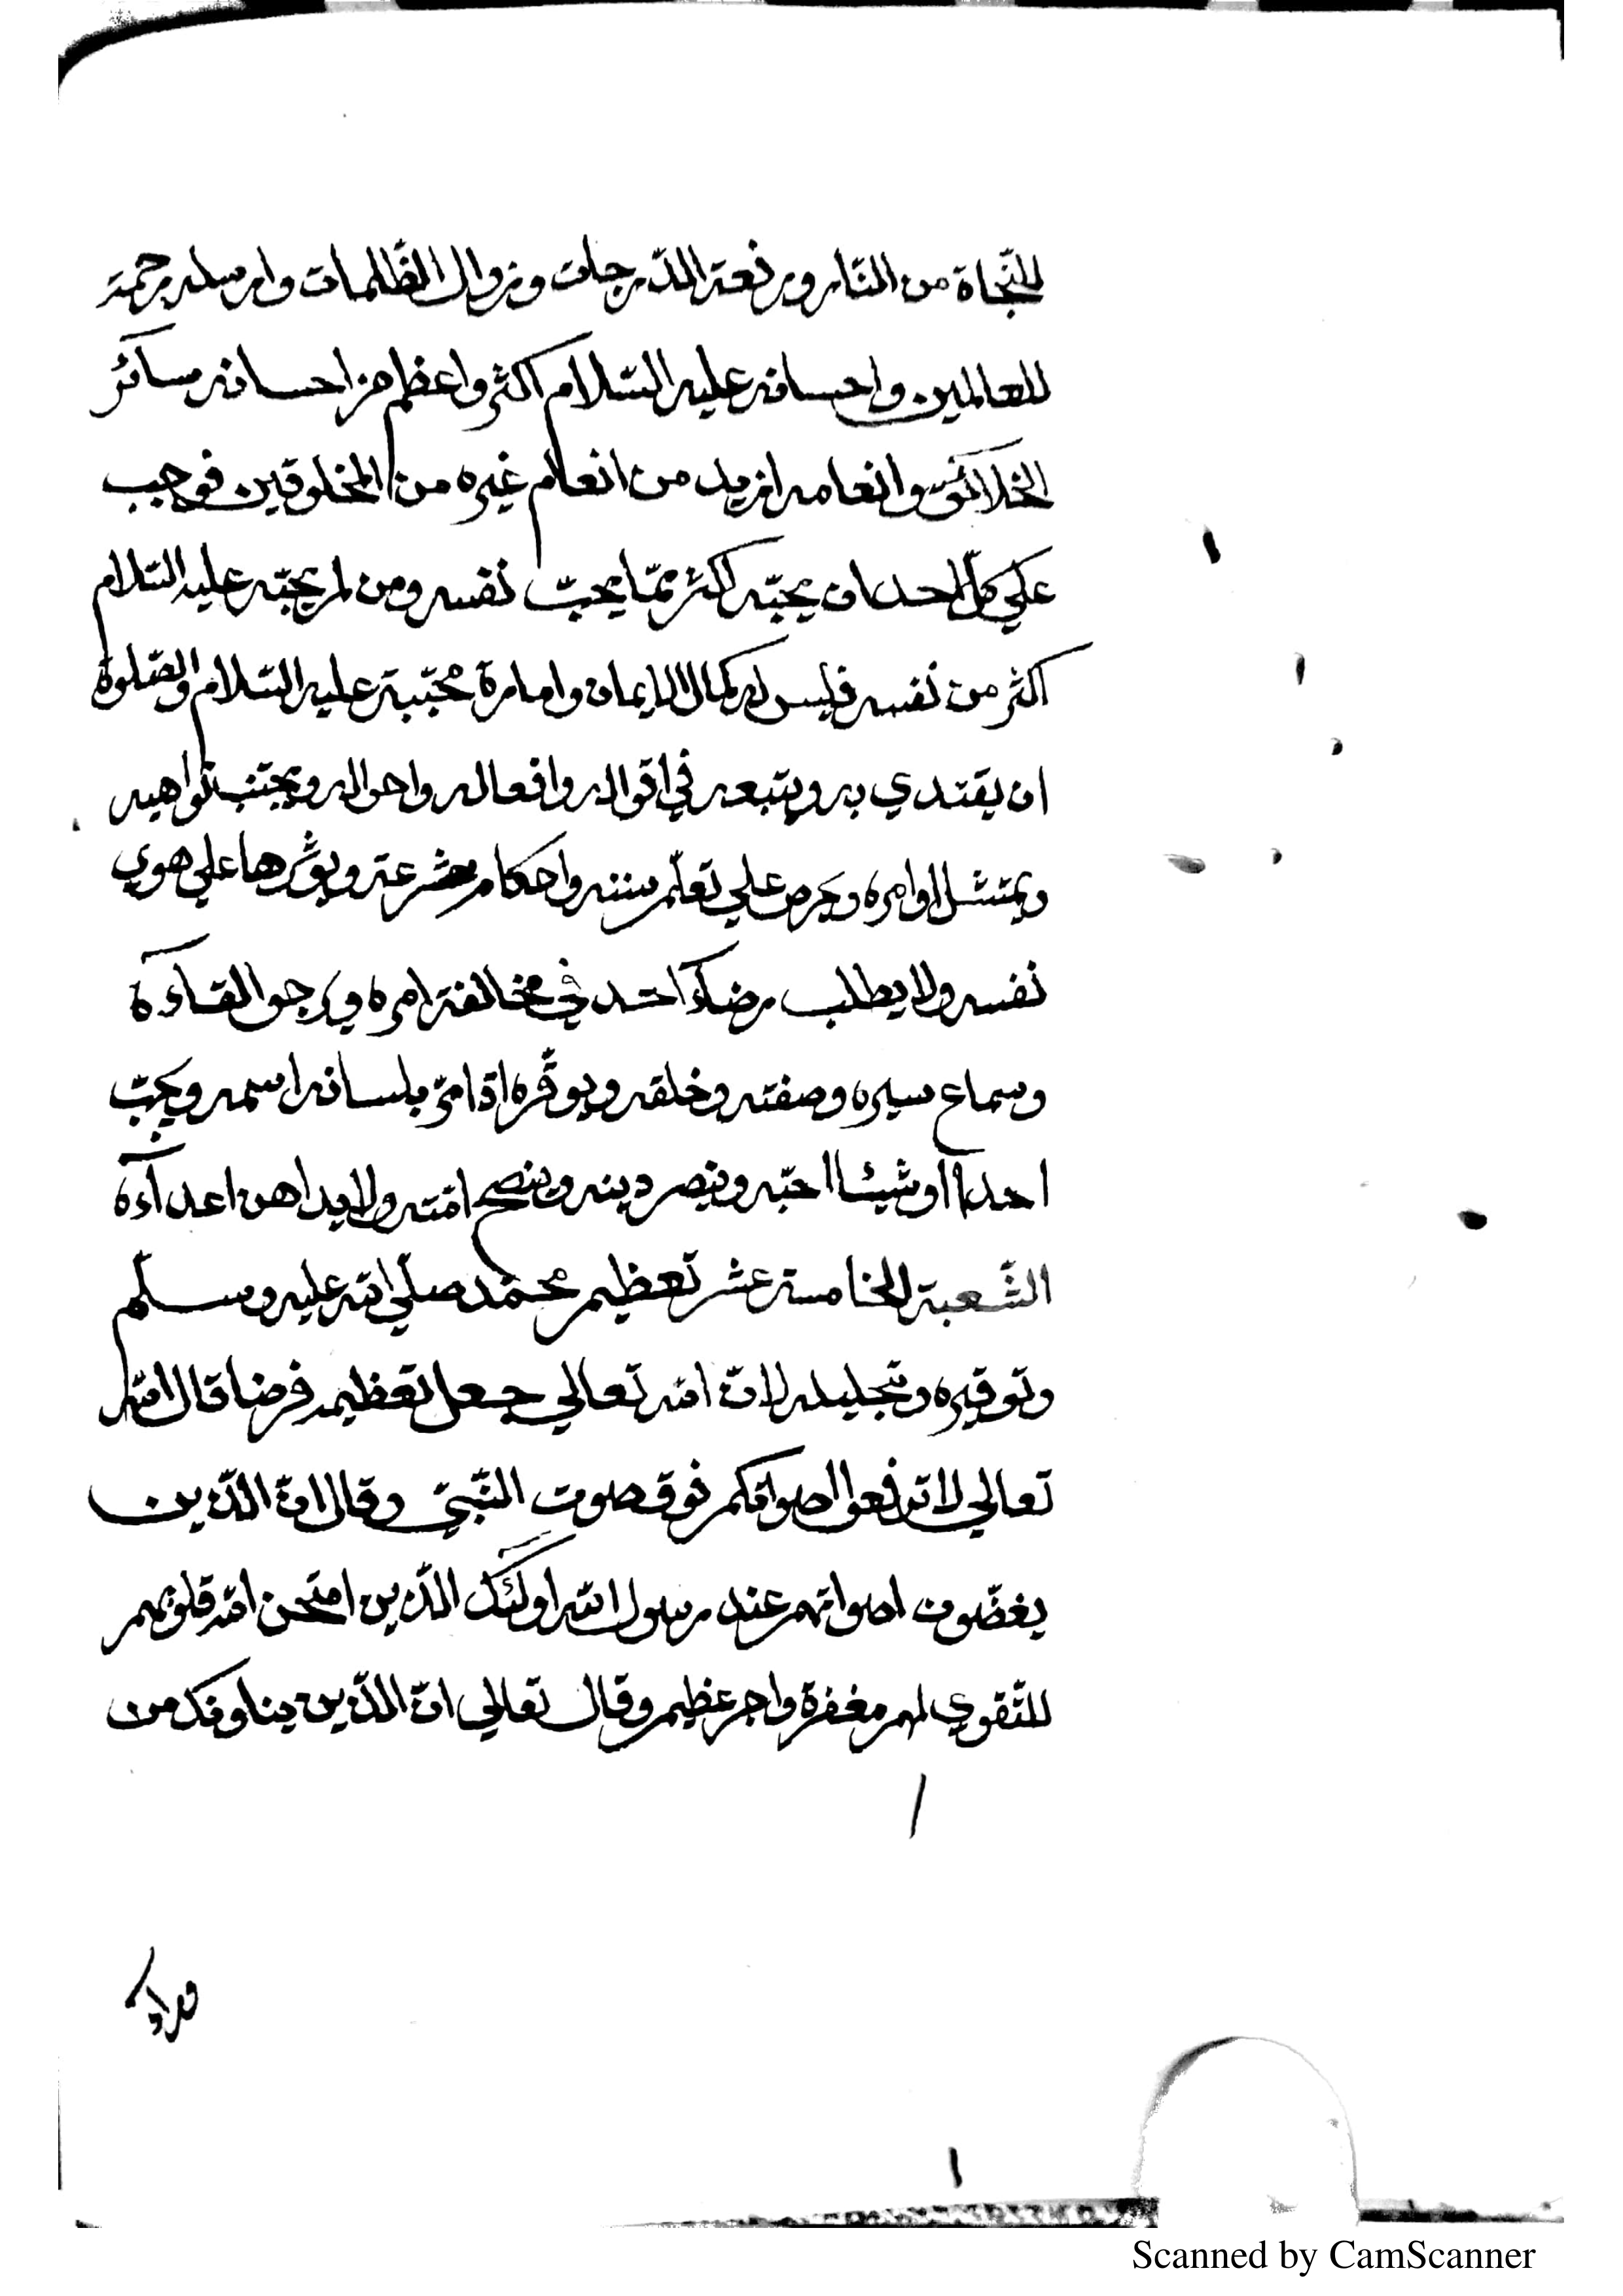 للنّجاة من النّار ورفعة الدّرجات وزوال الظّلمات وارسله رحمة
للعالمين واحسانه عليه السّلام اكثر واعظم من احسانه سائر
الخلائق وانعامه ازيد من انعام غيره من المخلوقين فوجب
علي كلّ احد ان يحبّه اكثر ممّا يحبّ نفسه ومن لم يحبّه عليه السّلام
اكثر من نفسه فليس له كمال الايمان وامارة محبّته عليه السّلام والصّلوة
ان يقتدي به ويتبعه في اقواله وافعاله واحواله ويجتنب نواهيه
ويمتثل اوامره ويحرص علي تعلّم سننه واحكام شرعته ويؤثرها علي هوي
نفسه ولا يطلب رضآء احد في مخالفة امره ويرجو لقآءه
وسماع سيره وصفته وخلقه ويوقّره اذا مرّ بلسانه اسمه ويحبّ
احدا او شيئا احبّه وينصر دينه وينصح امّته ولا يداهن اعدآءه
الشّعبة الخامسة عشر تعظيم محمّد صلّي الله عليه وسلّم
وتوقيره وتجليله لانّ الله تعالي جعل تعظيمه فرضا قال الله
تعالي لا ترفعوا اصواتكم فوق صوت النّبيّ وقال انّ الّذين
يغضّون اصواتهم عند رسول الله اولئك الّذين امتحن الله قلوبهم
للتّقوي لهم مغفرة واجر عظيم وقال تعالي انّ الّذين ينادونك من
Scanned by CamScanner